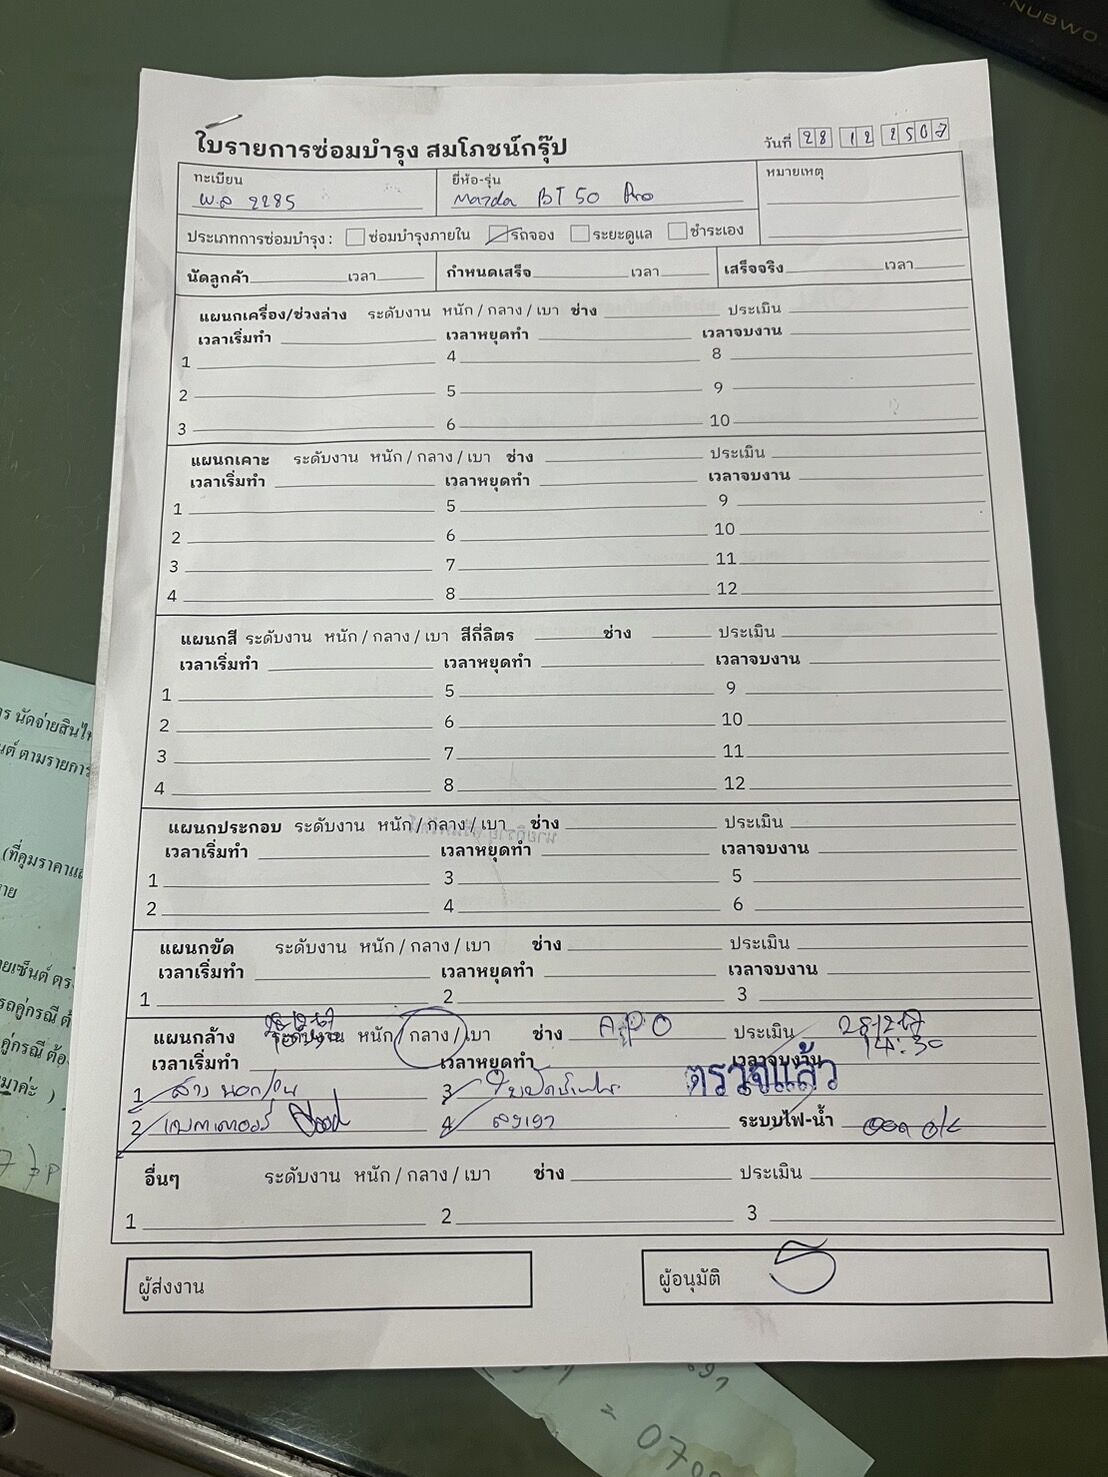 NUBWO
ใบรายการซ่อมบำรุง สมโภชน์กรุ๊ป
วันที่ 28 12 2567
ทะเบียน
2285
ยี่ห้อ-รุ่น
Mazda BT 50 Pro
หมายเหตุ
ประเภทการซ่อมบำรุง : ซ่อมบำรุงภายใน รถจอง ระยะดูแล ชำระเอง
นัดลูกค้า เวลา กำหนดเสร็จ เวลา เสร็จจริง เวลา
แผนกเครื่อง/ช่วงล่าง ระดับงาน หนัก / กลาง / เบา ช่าง ประเมิน
เวลาเริ่มทำ เวลาหยุดทำ เวลาจบงาน
1 4 8
2 5 9
3 6 10
แผนกเคาะ ระดับงาน หนัก / กลาง / เบา ช่าง ประเมิน
เวลาเริ่มทำ เวลาหยุดทำ เวลาจบงาน
1 5 9
2 6 10
3 7 11
4 8 12
แผนกสี ระดับงาน หนัก / กลาง / เบา สีกี่ลิตร ช่าง ประเมิน
เวลาเริ่มทำ เวลาหยุดทำ เวลาจบงาน
1 5 9
2 6 10
3 7 11
4 8 12
แผนกประกอบ ระดับงาน หนัก / กลาง / เบา ช่าง ประเมิน
เวลาเริ่มทำ เวลาหยุดทำ เวลาจบงาน
1 3 5
2 4 6
แผนกขัด ระดับงาน หนัก / กลาง / เบา ช่าง ประเมิน
เวลาเริ่มทำ เวลาหยุดทำ เวลาจบงาน
1 2 3
แผนกล้าง ระดับงาน หนัก / กลาง / เบา ช่าง ประเมิน 28-12-67
14:30
เวลาเริ่มทำ เวลาหยุดทำ เวลาจบงาน
1 ล้าง นอก/ใน 3 ตรวจแล้ว
2 4 ลงเงา ระบบไฟ-น้ำ ok
อื่นๆ ระดับงาน หนัก / กลาง / เบา ช่าง ประเมิน
1 2 3
ผู้ส่งงาน ผู้อนุมัติ
ตามรายการ
(ที่คุมราคาแ